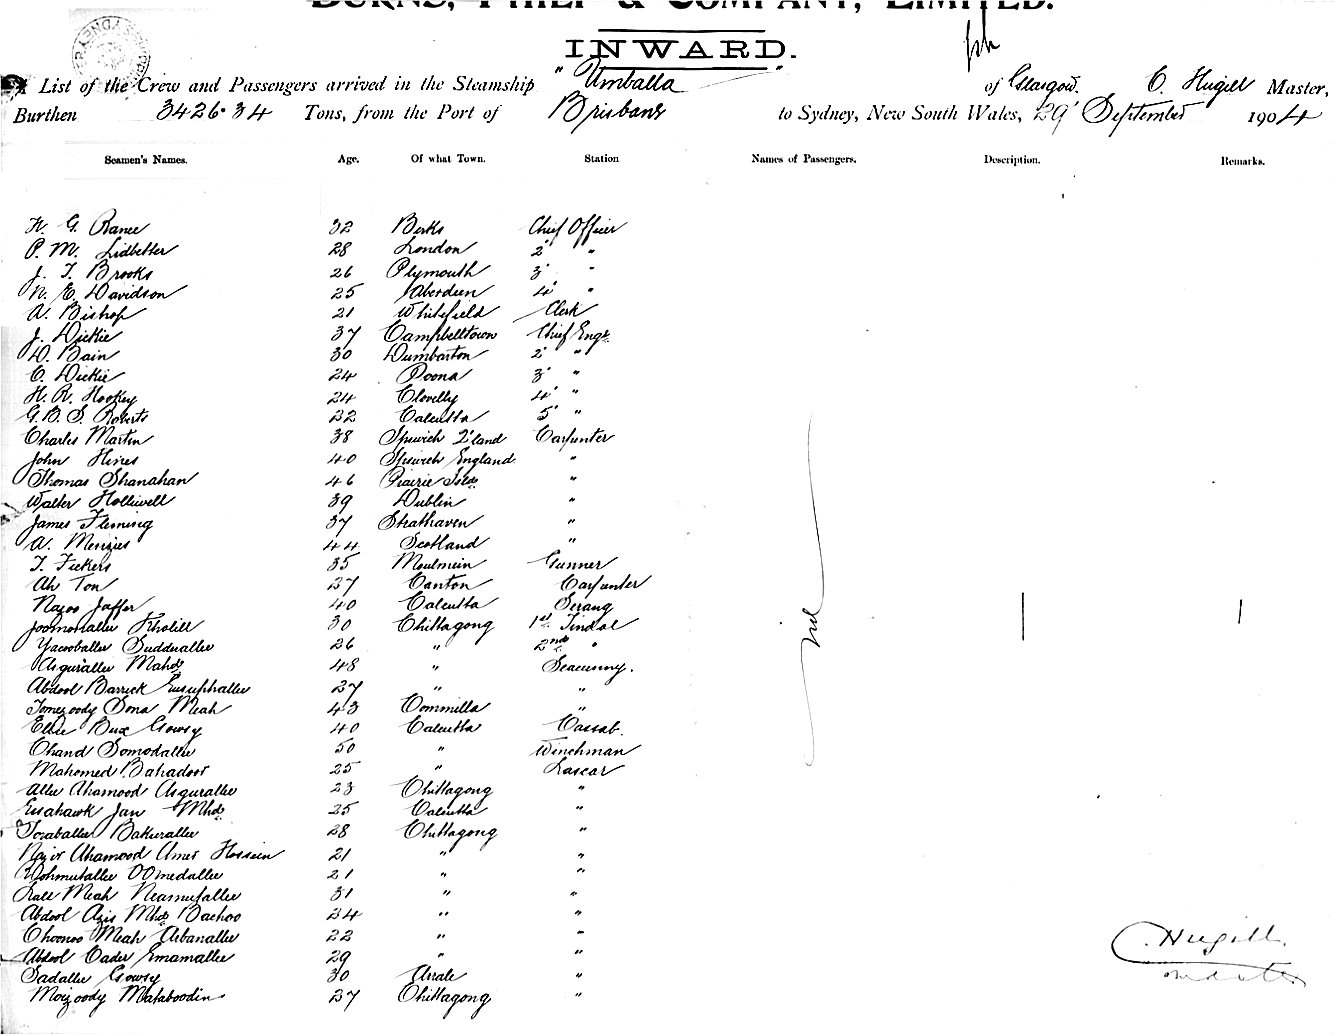 BURNS, PHILP & COMPANY, LIMITED.
INWARD.
A List of the Crew and Passengers arrived in the Steamship "Umballa" of Glasgow. C. Hugill Master,
Burthen 3426.34 Tons, from the Port of Brisbane to Sydney, New South Wales, 29' September 1904
Seamen's Names. Age. Of what Town. Station Names of Passengers. Description. Remarks.
H. G. Rance 32 Berks Chief Officer
P. M. Lidbetter 28 London 2' "
J. T. Brooks 26 Plymouth 3' "
N. E. Davidson 25 Aberdeen 4' "
A. Bishop 21 Whitefield Clerk
J. Dickie 37 Campbelltown Chief Engr.
D. Bain 30 Dumbarton 2' "
C. Dickie 24 Poona 3' "
H. R. Hookey 24 Clovelly 4' "
G. B. S. Roberts 22 Calcutta 5' "
Charles Martin 38 Ipswich Q'land Carpenter
John Hines 40 Ipswich England "
Thomas Shanahan 46 Prairie "
Walter Holliwell 39 Dublin "
James Fleming 37 Strathaven "
A. Menzies 44 Scotland "
T. Fickers 35 Moulmein Gunner
Ah Ton 37 Canton Carpenter
Nazoo Jaffer 40 Calcutta Serang
Joomonallee Kholill 30 Chittagong 1st Tindal
Yacooballee Suddeallee 26 " 2nd "
Asgurallee Mahd 48 " Seacunny.
Abdool Barrick Eusuphallee 27 " "
Tomezoody Sona Meah 43 Commilla "
Ellie Bux Gowsy 40 Calcutta Cassab.
Chand Somodallee 50 " Winchman
Mahomed Bahadoor 25 " Lascar
Allee Ahamood Asgurallee 23 Chittagong "
Essahawk Jan Mhd 25 Calcutta "
Toraballee Bakurallee 28 Chittagong "
Nazir Ahamood Amer Hossein 21 " "
Rohmutallee Oomedallee 21 " "
Lall Meah Neamutallee 31 " "
Abdool Azis Mhd Bachoo 34 " "
Choonoo Meah Arbanallee 22 " "
Abdool Cader Emamallee 29 " "
Sadallee Gowsy 30 "
Moizoody Mataboodin 37 Chittagong "
nil
C. Hugill.
Master